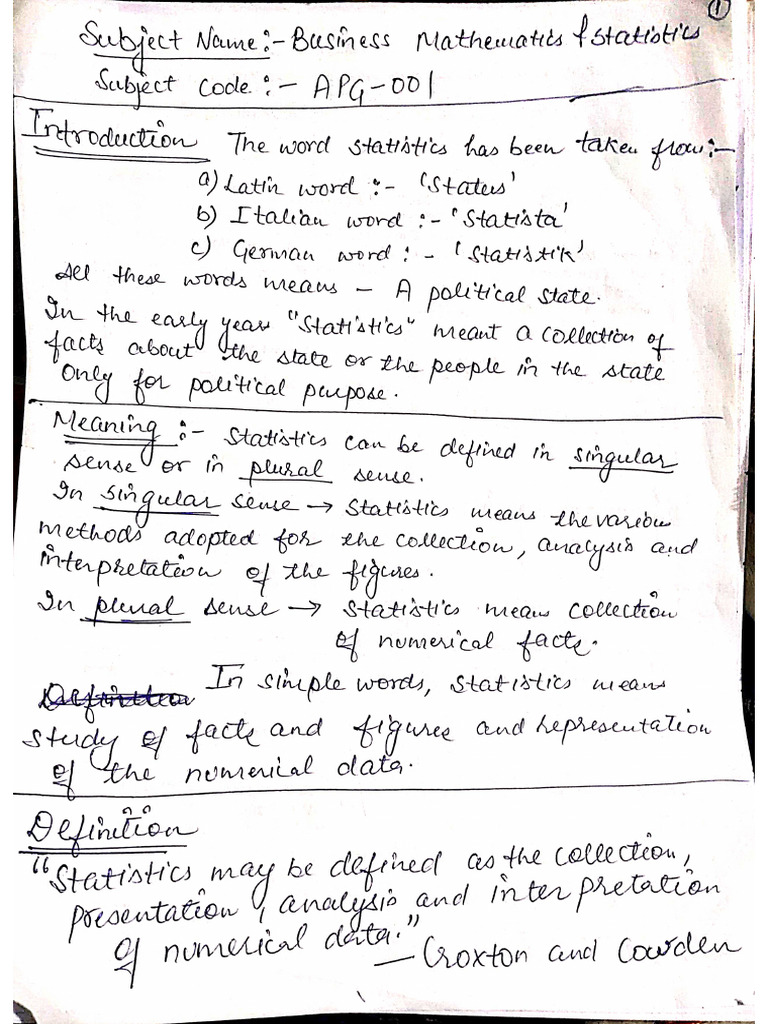 1
Subject Name:- Business Mathematics & Statistics
Subject Code:- APG-001
Introduction The word statistics has been taken from:-
a) Latin word :- 'Status'
b) Italian word :- 'Statista'
c) German word :- 'Statistik'
All these words means - A political state.
In the early year "Statistics" meant a collection of
facts about the state or the people in the state
only for political purpose.
Meaning :- Statistics can be defined in singular
sense or in plural sense.
In singular sense → Statistics means the various
methods adopted for the collection, analysis and
interpretation of the figures.
In plural sense → Statistics means collection
of numerical facts.
Definition In simple words, statistics means
study of facts and figures and representation
of the numerical data.
Definition
"Statistics may be defined as the collection,
presentation, analysis and interpretation
of numerical data."
- Croxton and Cowden